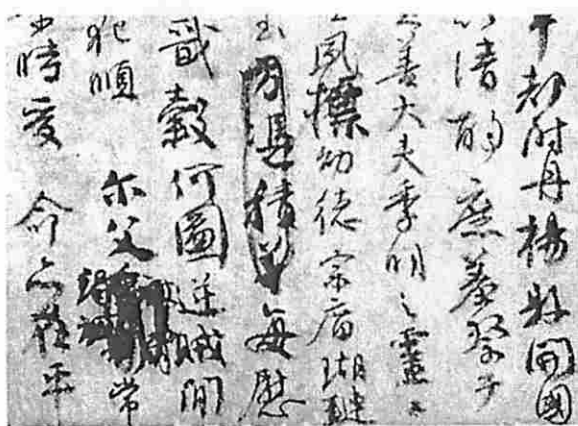 車都尉丹楊縣開國
以清酌庶羞祭于
善大夫季明之靈曰
夙標幼德宗廟瑚璉
玉方憑積善每慰
戩穀何圖逆賊閒
犯順尓父竭誠常
時受命亦在平